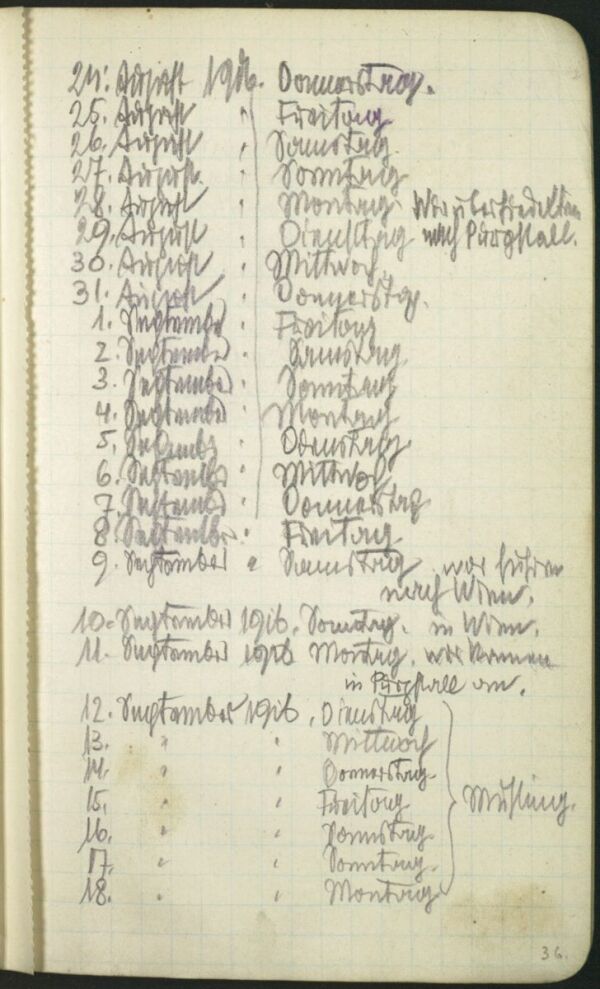 24. August 1916. Donnerstag.
25. August " Freitag
26. August " Samstag
27. August " Sonntag
28. August " Montag. Wir übersiedelten
29. August " Dienstag nach Purgstall.
30. August " Mittwoch
31. August " Donnerstag.
1. September " Freitag
2. September " Samstag
3. September " Sonntag
4. September " Montag
5. September " Dienstag
6. September " Mittwoch
7. September " Donnerstag
8. September " Freitag
9. September " Samstag wir fuhren
nach Wien.
10. September 1916. Sonntag. in Wien.
11. September 1916 Montag. wir kamen
in Purgstall an.
12. September 1916. Dienstag
13. " " Mittwoch
14. " " Donnerstag
15. " " Freitag
16. " " Samstag
17. " " Sonntag
18. " " Montag
36.